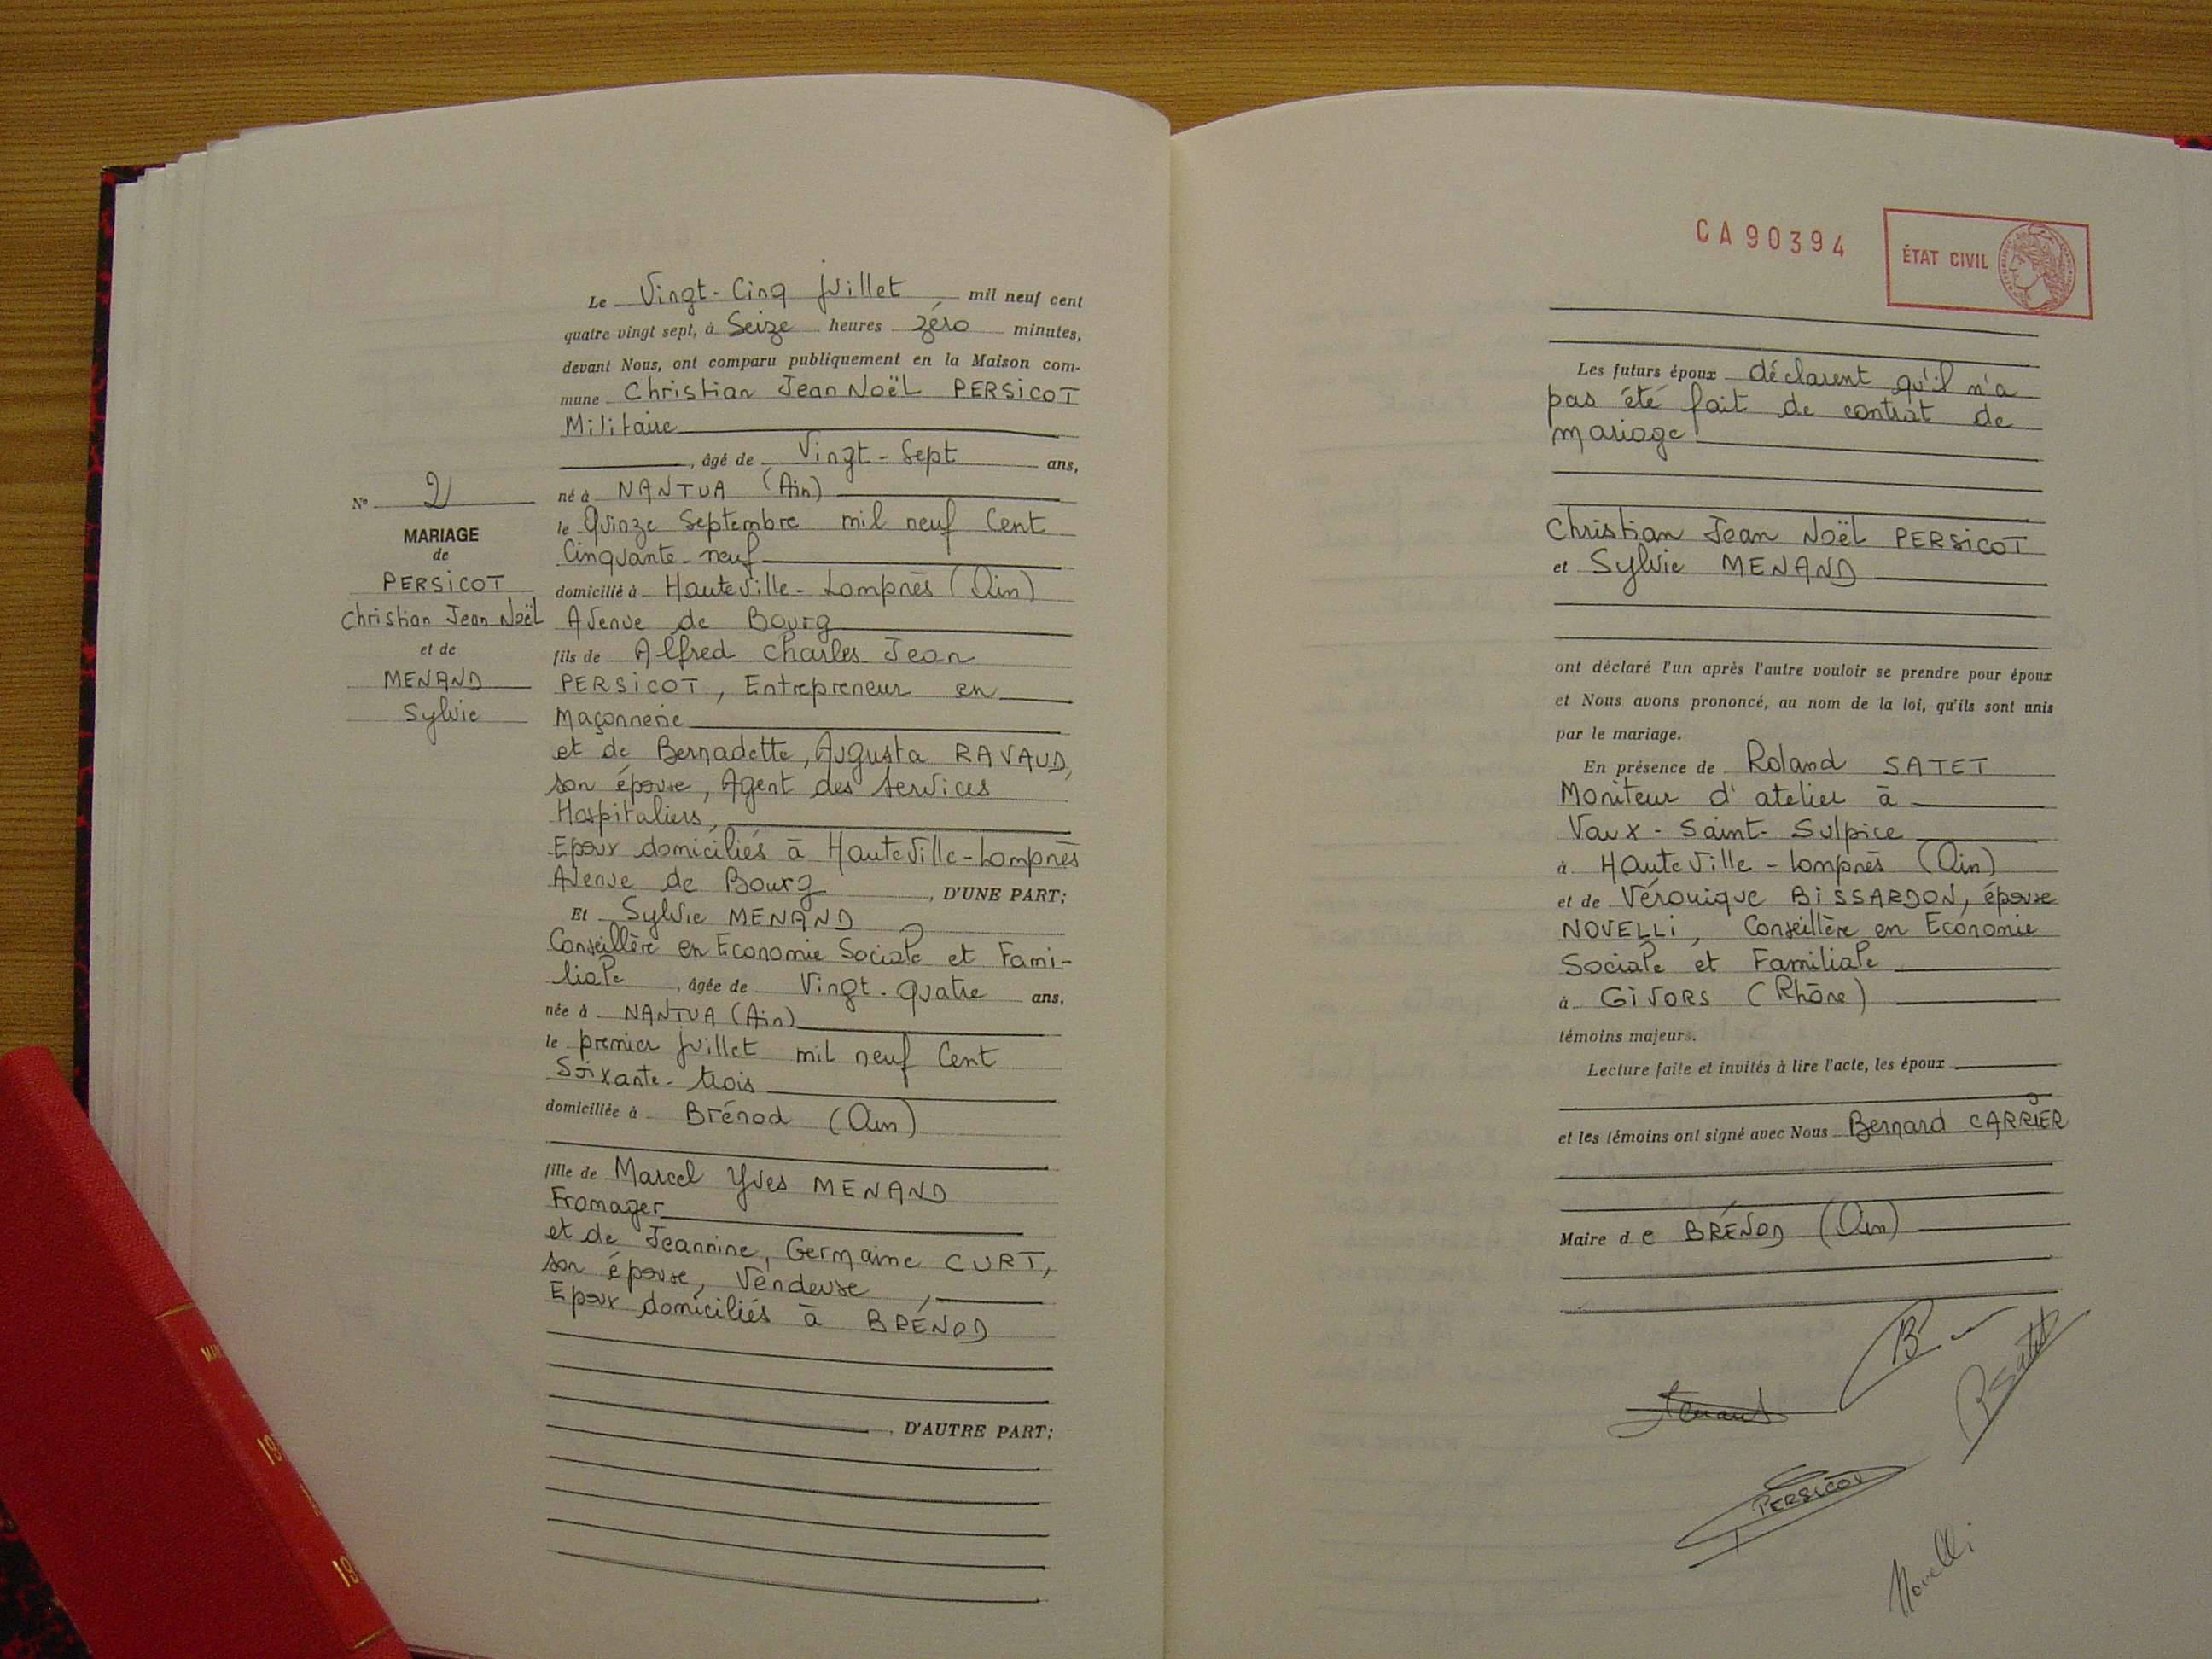 N° 2
MARIAGE
de
PERSICOT
Christian Jean Noël
et de
MENAND
Sylvie
Le Vingt-Cinq juillet mil neuf cent
quatre vingt sept, à Seize heures zéro minutes,
devant Nous, ont comparu publiquement en la Maison com-
mune Christian Jean Noël PERSICOT
Militaire
, âgé de Vingt-Sept ans,
né à NANTUA (Ain)
le Quinze Septembre mil neuf Cent
Cinquante-neuf
domicilié à Hauteville-Lompnès (Ain)
Avenue de Bourg
fils de Alfred Charles Jean
PERSICOT, Entrepreneur en
Maçonnerie
et de Bernadette, Augusta RAVAUD,
son épouse, Agent des services
Hospitaliers,
Epoux domiciliés à Hauteville-Lompnès
Avenue de Bourg , D'UNE PART;
Et Sylvie MENAND
Conseillère en Economie Sociale et Fami-
liale , âgée de Vingt-quatre ans,
née à NANTUA (Ain)
le premier juillet mil neuf Cent
Soixante-trois
domiciliée à Brénod (Ain)
fille de Marcel Yves MENAND
Fromager
et de Jeannine, Germaine CURT,
son épouse, Vendeuse ,
Epoux domiciliés à BRÉNOD
, D'AUTRE PART;
CA90394
ÉTAT CIVIL
Les futurs époux déclarent qu'il n'a
pas été fait de contrat de
mariage.
Christian Jean Noël PERSICOT
et Sylvie MENAND
ont déclaré l'un après l'autre vouloir se prendre pour époux
et Nous avons prononcé, au nom de la loi, qu'ils sont unis
par le mariage.
En présence de Roland SATET
Moniteur d'atelier à
Vaux-Saint-Sulpice
à Hauteville-Lompnès (Ain)
et de Véronique BISSARDON, épouse
NOVELLI, Conseillère en Economie
Sociale et Familiale
à GIVORS (Rhône)
témoins majeurs.
Lecture faite et invités à lire l'acte, les époux
et les témoins ont signé avec Nous Bernard CARRIER
Maire de BRÉNOD (Ain)
B
RSatet
Menand
PERSICOT
Novelli
19
19